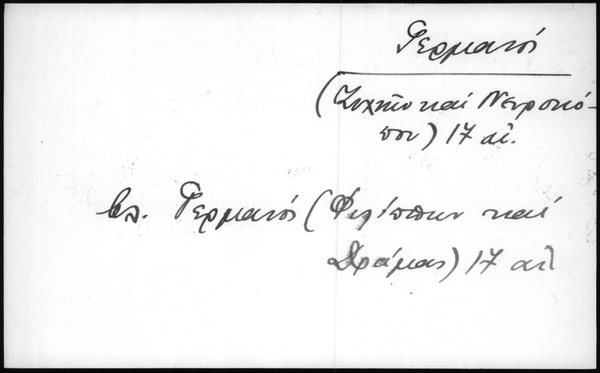 Γερμανός
(Ζυχνῶν καί Νευροκό-
που) 17 αἰ.
βλ. Γερμανός (Φιλίππων καί
Δράμας) 17 αἰ